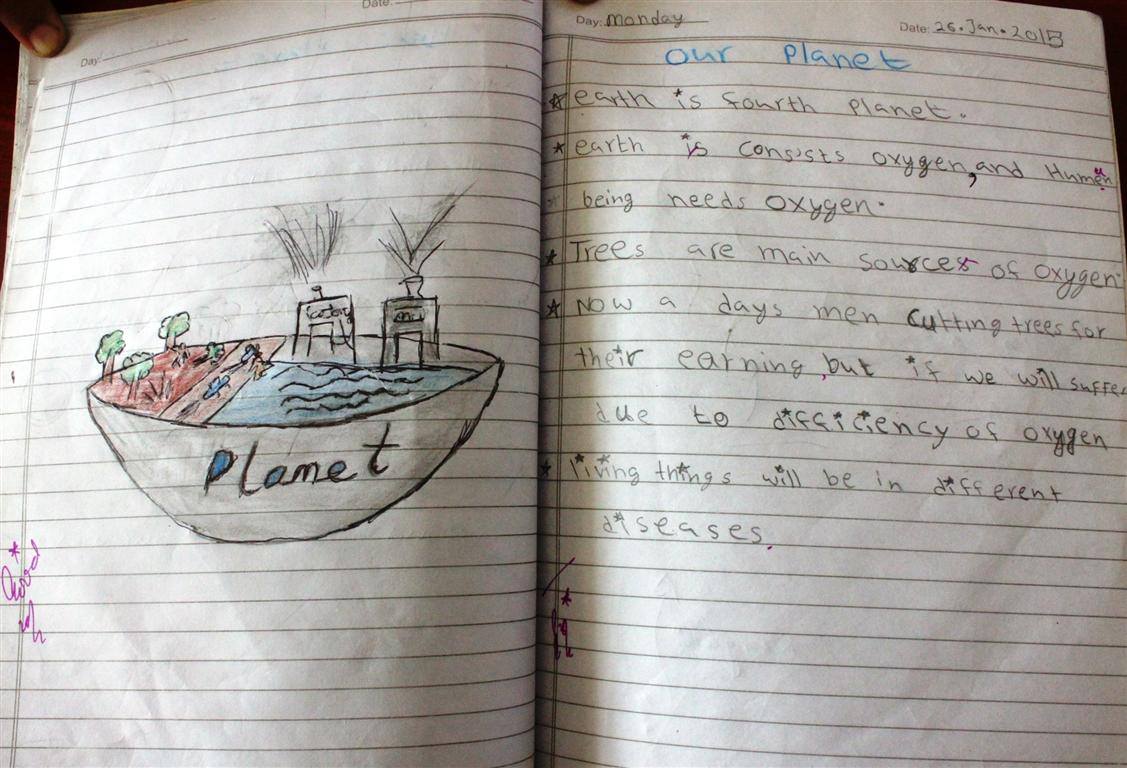 Date:
Day:
Planet
Good
Day: Monday
Date: 26.Jan.2015
Our Planet
* earth is fourth planet.
* earth is consists oxygen, and Human
being needs oxygen.
* Trees are main sources of oxygen.
* Now a days men cutting trees for
their earning, but if we will suffer
due to difficiency of oxygen
* living things will be in different
diseases.